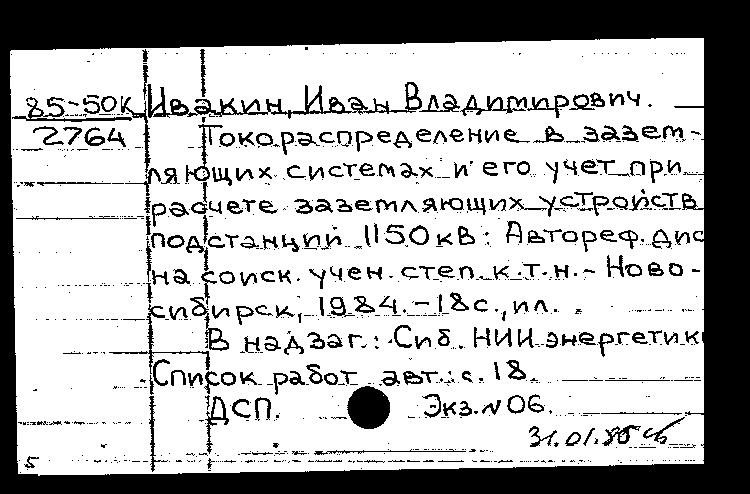 85-50К Ивакин, Иван Владимирович.
2764 Токораспределение в зазем-
ляющих системах и его учет при
расчете заземляющих устройств
подстанций 1150кВ: Автореф. дис
на соиск. учен. степ. к.т.н. - Ново-
сибирск, 1984. - 18с., ил.
В надзаг.: Сиб. НИИ энергетики
Список работ авт.: с. 18.
ДСП. Экз. N 06.
31.01.85
5